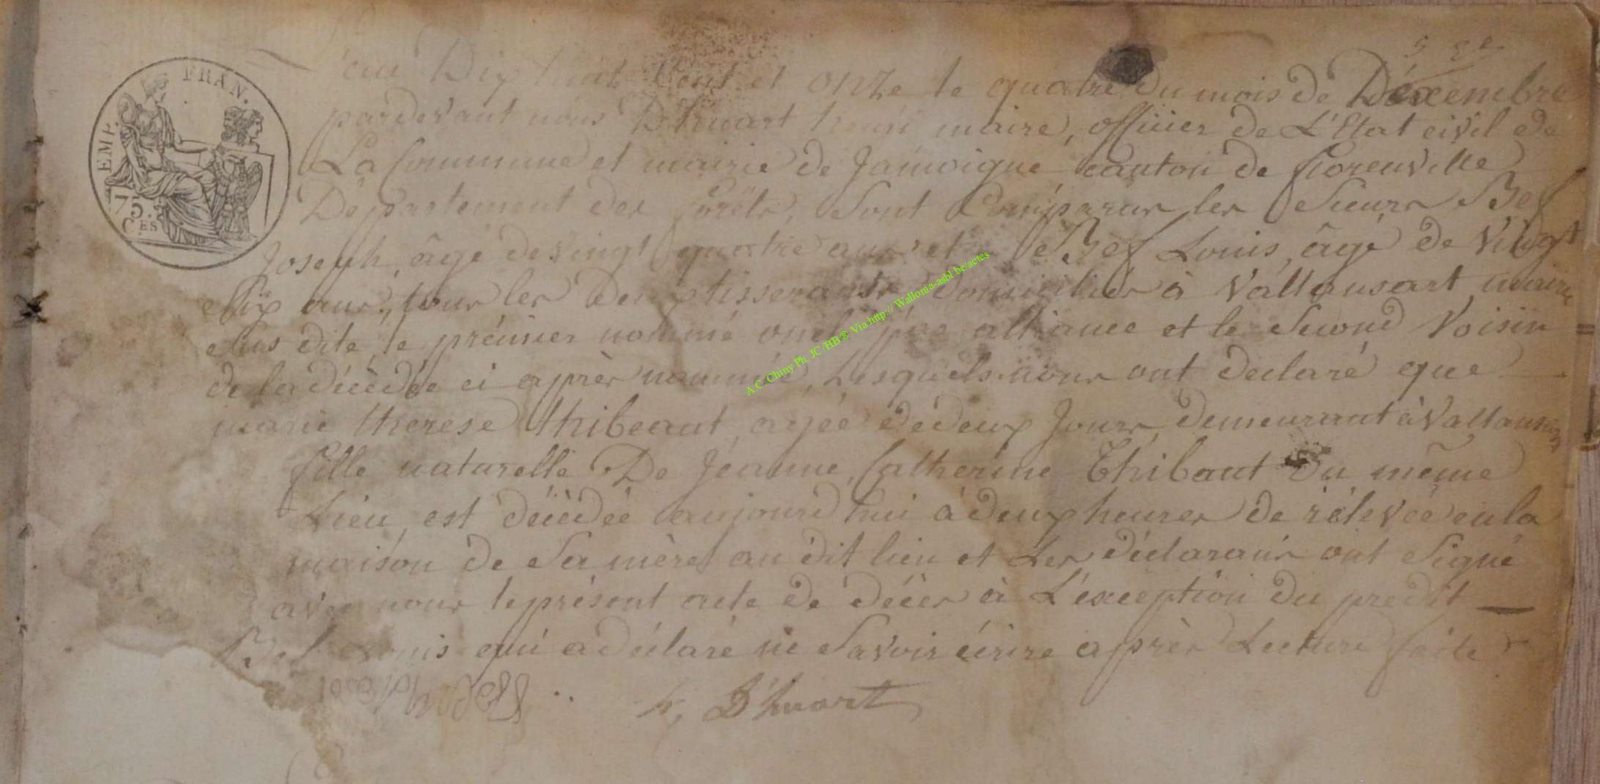 EMP. FRAN.
75.
C.ES
5 8e
l'an Dix huit Cent et onze le quatre du mois de Décembre
pardevant nous D'huart henri maire, officier de L'Etat civil de
La Commune et mairie de Jamoigne canton de florenville
Département des forêts, Sont Comparus les Sieurs Bef
Joseph, âgé de vingt quatre ans et le Bef Louis, âgé de vingt
Six ans, tous les Deux tisserants Domiciliés à Vallansart mairie
Sus dite, le prémier nommé oncle par alliance et le Second Voisin
de la décédée ci après nommée, Lesquels nous ont déclaré que
marie therese thibeaut, agée de deux Jours demeurant à Vallansart
fille naturelle De Jeanne Catherine Thibaut du même
Lieu, est décédée aujourd'hui à deux heures de rélevée en la
maison de Sa mère au dit lieu et Les déclarans ont Signé
avec nous le présent acte de décès à L'éxception du prédit
Bef Louis qui a déclaré ne Savoir écrire après Lecture faite
h, D'huart
A.C. Chiny Ph. JC BB® Via http://Wallonia-asbl.be/actes